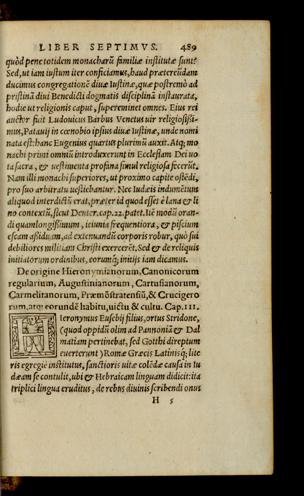 LIBER SEPTIMVS. 489
quòd pene totidem monacharũ familiæ institutæ sunt.
Sed, ut iam iustum iter conficiamus, haud prætereũdam
ducimus congregationẽ diuæ Iustinæ, quæ postremò ad
pristinã diui Benedicti dogmatis disciplinã instaurata,
hodie ut religionis caput, supereminet omnes. Eius rei
auctor fuit Ludouicus Barbus Venetus uir religiosissi-
mus, Patauij in cœnobio ipsius diuæ Iustinæ, unde nomi
nata est: hanc Eugenius quartus plurimũ auxit. Atq; mo
nachi primi omniũ introduxerunt in Ecclesiam Dei uo
ta sacra, & uestimenta profana simul religiosa fecerũt.
Nam illi monachi superiores, ut proximo capite ostẽdi,
pro suo arbitratu uestiebantur. Nec Iudæis indumẽtum
aliquod interdictũ erat, præter id quod esset è lana & li
no contextũ, sicut Deuter. cap. 22. patet. Iiẽ modũ oran-
di quamlongissimum, ieiunia frequentiora, & piscium
escam assiduam, ad extenuandũ corporis robur, quò sui
debiliores militiam Christi exercerẽt. Sed & de reliquis
initiatorum ordinibus, eorumq́; initijs iam dicamus.
De origine Hieronymianorum, Canonicorum
regularium, Augustinianorum, Cartusianorum,
Carmelitanorum, Præmõstratensiũ, & Crucigero
rum, atq; eorundẽ habitu, uictu & cultu. Cap. III.
HIeronymus Eusebij filius, ortus Stridone,
(quod oppidũ olim ad Pannoniã & Dal
matiam pertinebat, sed Gotthi direptum
euerterunt) Romæ Græcis Latinisq́; lite
ris egregiè institutus, sanctioris uitæ colẽdæ causa in Iu
dæam se contulit, ubi & Hebraicam linguam didicit: ita
triplici lingua eruditus, de rebus diuinis scribendi onus
H 5